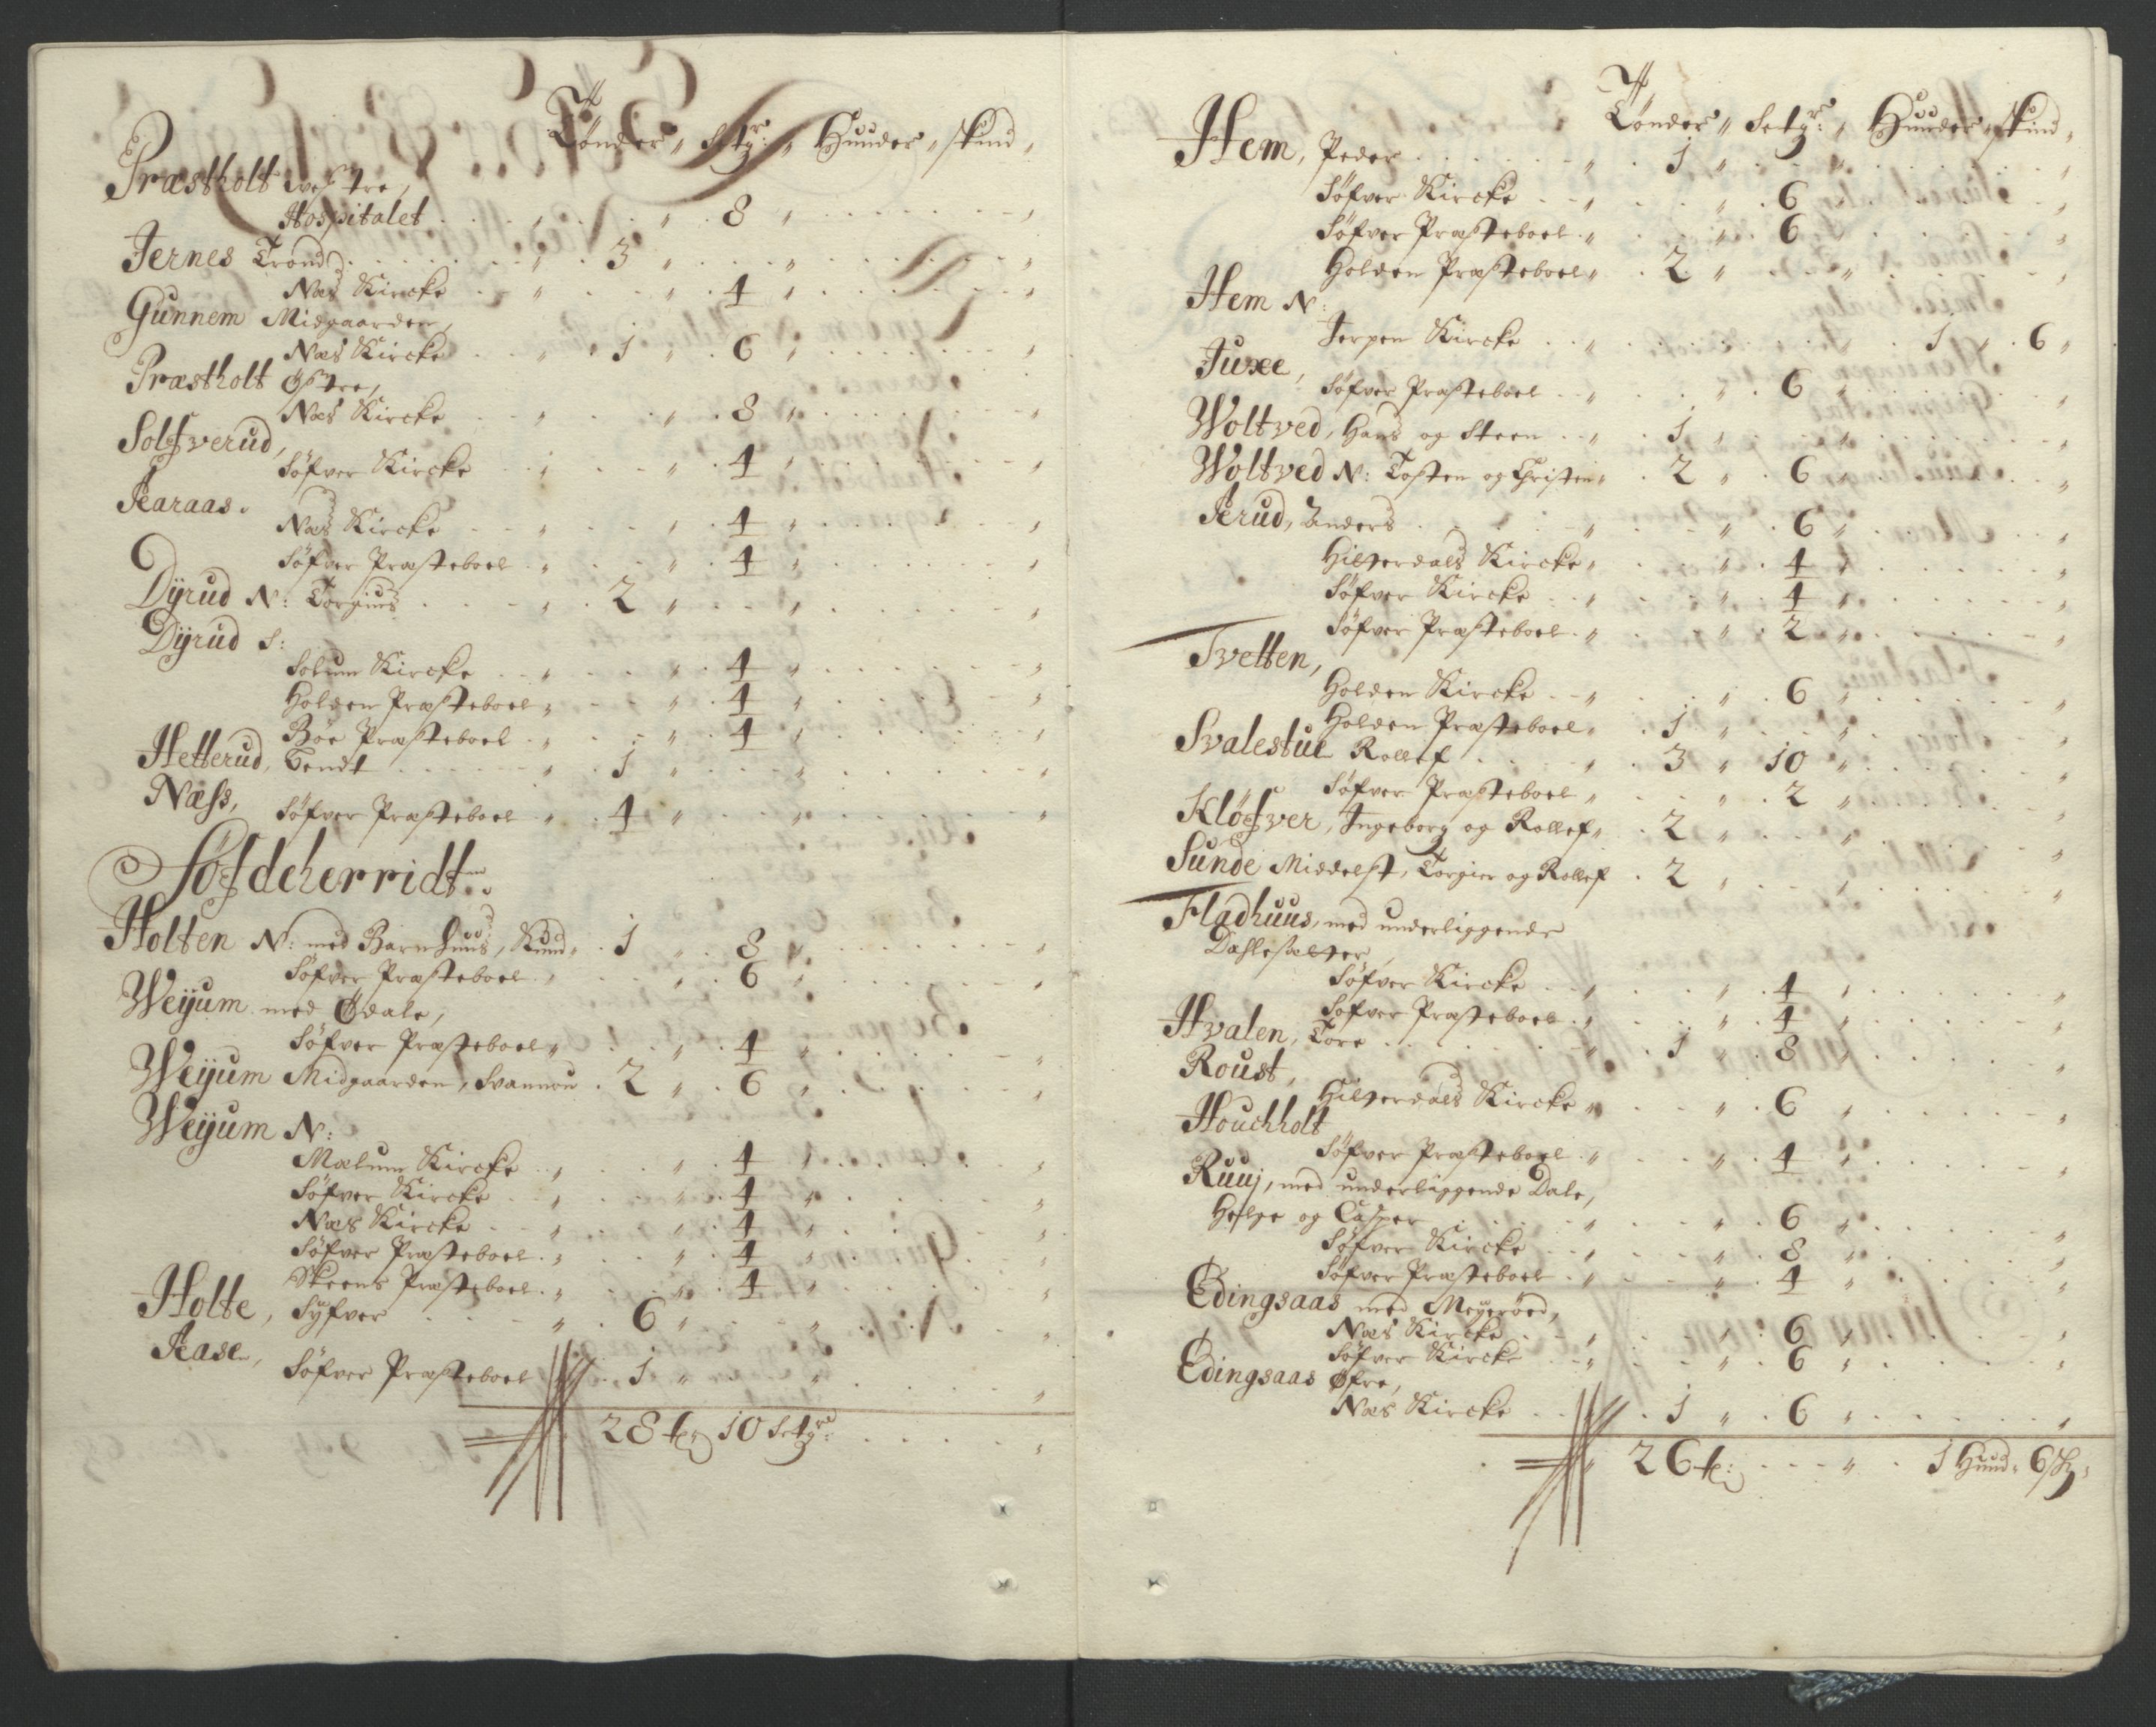 Tønder „ Setgr: „ Huuder „ skind „
Præstholt westre,
Hospitalet . . „ . . „ . 8 „ . . . „
Jernes Trond . . . „ . 3 „ . . „ . . . „
Næs Kircke . . „ . . „ . 4 „ . . . „
Gunnem Midgaarden,
Næs Kircke . . „ . 1 „ . 6 „ . . . „
Præstholt østre,
Næs Kircke . . „ . . „ . 8 „ . . . „
Solfverud,
Søfver Kircke . . „ . . „ . 4 „ . . . „
Aaraas.
Næs Kircke . . „ . . „ . 4 „ . . . „
Søfver Præsteboel . „ . . „ . 4 „ . . . „
Dyrud N: Torgiuus . . . „ . 2 „ . . „ . . . „
Dyrud S:
Solum Kircke . . „ . . „ . 4 „ . . . „
Holden Præsteboel „ . . „ . 4 „ . . . „
Bøe Præsteboel . „ . . „ . 4 „ . . . „
Hetterud, Tendt . . . „ . 1 „ . . „ . . . „
Næss,
Søfver Præsteboel . „ . 4 „ . . „ . . . „
Søfdeherridt.
Holten N: med Barnhuus, Knud „ . 1 „ . 8 „ . . . „
Søfver Præsteboel . „ . . „ . 6 „ . . . „
Weyum med Ødale,
Søfver Præsteboel „ . . „ . 4 „ . . . „
Weyum Midgaarden, Svannou . 2 „ . 6 „ . . . „
Weyum N:
Mælum Kircke . „ . . „ . 4 „ . . . „
Søfver Kircke . . „ . . „ . 4 „ . . . „
Næs Kircke . . „ . . „ . 4 „ . . . „
Søfver Præsteboel . „ . . „ . 4 „ . . . „
Skeens Præsteboel . „ . . „ . 4 „ . . . „
Holte, Syfver . . . „ . 6 „ . . „ . . . „
Aase,
Søfver Præsteboel „ . 1 „ . . „ . . . „
28 tr 10 Setgr: . . . „
Tønder „ Setgr: „ Huuder „ skind „
Hem, Peder . . . „ . 1 „ . . „ . . . „
Søfver Kircke . . „ . . „ . 6 „ . . . „
Søfver Præsteboel . „ . . „ . 6 „ . . . „
Holden Præsteboel „ . 2 „ . . „ . . . „
Hem N:
Jerpen Kircke . . „ . . . . 1 „ . 6 „
Juxe,
Søfver Præsteboel . . „ . . „ . 6 „ . . . „
Woltved, Hans og Steen . . „ . 1 „ . . „ . . . „
Woltved N: Tosten og Christen „ . 2 „ . 6 „ . . . „
Aerud, Anders . . . „ . . „ . 6 „ . . . „
Hilterdals Kircke „ . . „ . 4 „ . . . „
Søfver Kircke . . „ . . „ . 4 „ . . . „
Søfver Præsteboel . „ . . „ . 2 „ . . . „
Tvetten,
Holden Kircke . . „ . . „ . 6 „ . . . „
Holden Præsteboel „ . 1 „ . . „ . . . „
Svalestul Rollef . . . „ . 3 „ 10 „ . . . „
Søfver Præsteboel „ . . „ . 2 „ . . . „
Kløfver, Ingeborg og Rollef „ . 2 „ . . „ . . . „
Sunde Middelst, Torgier og Rollef . 2 „ . . „ . . . „
Fladhuus, med underliggende
Dahlesæter,
Søfver Kircke . . „ . . „ . 4 „ . . . „
Søfver Præsteboel . „ . . „ . 4 „ . . . „
Hvalen, Tore . . . „ . 1 „ . 8 „ . . . „
Roust,
Hilterdals Kircke „ . . „ . 6 „ . . . „
Houchholt
Søfver Præsteboel . „ . . „ . 4 „ . . . „
Ruuj, med underliggende Dale,
Helge og Casper . . . „ . . „ . 6 „ . . . „
Søfver Kircke . . „ . . „ . 8 „ . . . „
Søfver Præsteboel . „ . . „ . 4 „ . . . „
Edingsaas med Meyerøed,
Næs Kircke . . „ . . „ . 6 „ . . . „
Søfver Kircke . . „ . . „ . 6 „ . . . „
Edingsaas Øfre,
Næs Kircke . . „ . 1 „ . 6 „ . . . „
26 tr: . . . „ . 1 Huud: 6 sk: